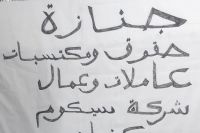 جنازة
حقوق ومكتسبات
عاملات وعمال
شركة سيكوم